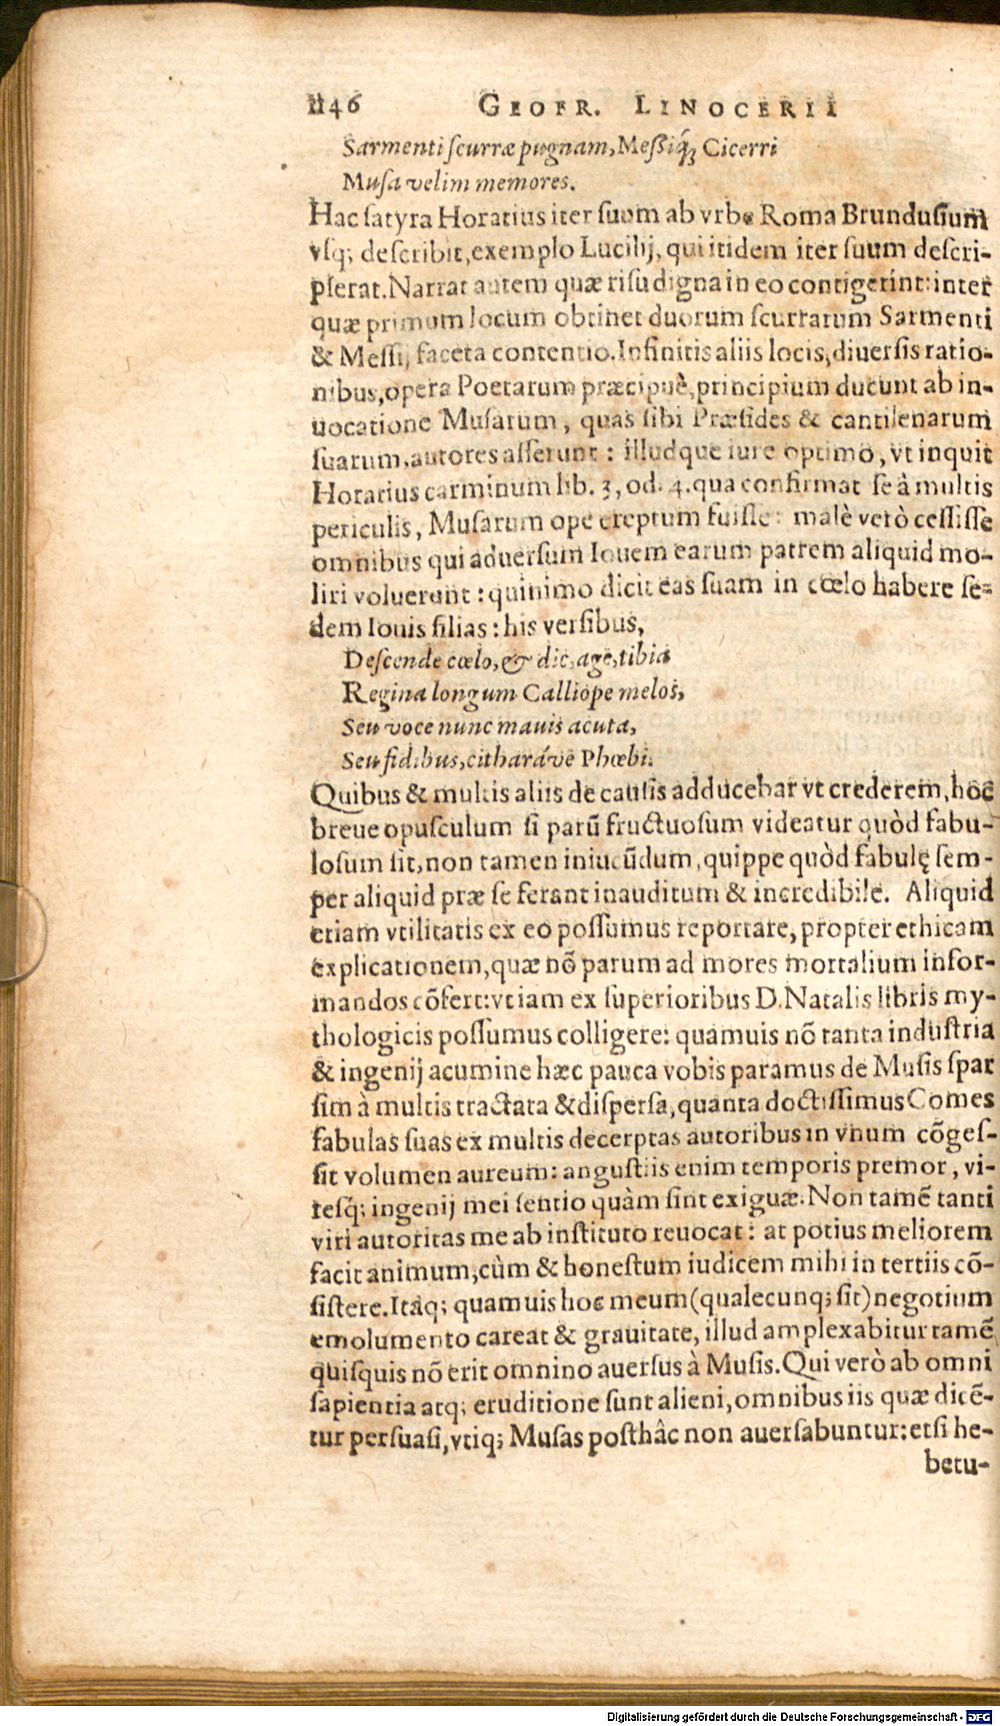 1146 GEOFR. LINOCERII
Sarmenti ſcurræ pugnam, Meßiq́; Cicerri
Muſa velim memores.
Hac ſatyra Horatius iter ſuum ab vrbe Roma Brunduſium
vſq; deſcribit, exemplo Lucilij, qui itidem iter ſuum deſcri-
pſerat. Narrat autem quæ riſu digna in eo contigerint: inter
quæ primum locum obtinet duorum ſcurrarum Sarmenti
& Meſſij faceta contentio. Infinitis aliis locis, diuerſis ratio-
nibus, opera Poetarum præcipuè, principium ducunt ab in-
uocatione Muſarum, quas ſibi Præſides & cantilenarum
ſuarum, autores aſſerunt: illudque iure optimo, vt inquit
Horatius carminum lib. 3, od. 4. qua confirmat ſe à multis
periculis, Muſarum ope ereptum fuiſſe: malè verò ceſſiſſe
omnibus qui aduerſum Iouem earum patrem aliquid mo-
liri voluerunt: quinimo dicit eas ſuam in cœlo habere ſe-
dem Iouis filias: his verſibus,
Deſcende cœlo, & dic, age, tibia
Regina longum Calliope melos,
Seu voce nunc mauis acuta,
Seu fidibus, citharáve Phœbi.
Quibus & multis aliis de cauſis adducebar vt crederem, hoc
breue opuſculum ſi parũ fructuoſum videatur quòd fabu-
loſum ſit, non tamen iniucũdum, quippe quòd fabulę ſem-
per aliquid præ ſe ferant inauditum & incredibile. Aliquid
etiam vtilitatis ex eo poſſumus reportare, propter ethicam
explicationem, quæ nõ parum ad mores mortalium infor-
mandos cõfert: vtiam ex ſuperioribus D. Natalis libris my-
thologicis poſſumus colligere: quamuis nõ tanta induſtria
& ingenij acumine hæc pauca vobis paramus de Muſis ſpar
ſim à multis tractata & diſperſa, quanta doctiſſimus Comes
fabulas ſuas ex multis decerptas autoribus in vnum cõgeſ-
ſit volumen aureum: anguſtiis enim temporis premor, vi-
reſq́; ingenij mei ſentio quàm ſint exiguæ. Non tamẽ tanti
viri autoritas me ab inſtituto reuocat: at potius meliorem
facit animum, cùm & honeſtum iudicem mihi in tertiis cõ-
ſiſtere. Itaq; quamuis hoc meum (qualecunq; ſit) negotium
emolumento careat & grauitate, illud amplexabitur tamẽ
quiſquis nõ erit omnino auerſus à Muſis. Qui verò ab omni
ſapientia atq; eruditione ſunt alieni, omnibus iis quæ dicẽ-
tur perſuaſi, vtiq; Muſas poſthâc non auerſabuntur: etſi he-
betu-
Digitalisierung gefördert durch die Deutsche Forschungsgemeinschaft - DFG